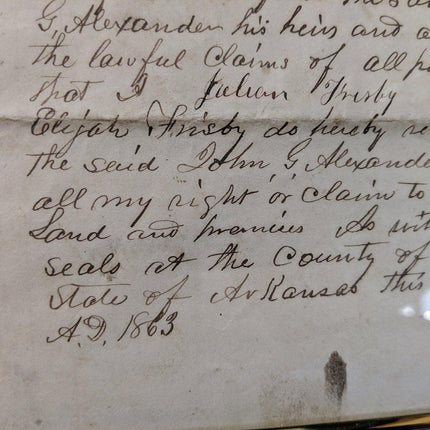 G, Alexander his heirs and a
the lawful Claims of all p
that I Julian Frisby
Elijah Frisby do hereby re
the said John G, Alexande
all my right or Claim to
Land and premices As wit
seals at the County of
State of Arkansas this
A.D, 1863